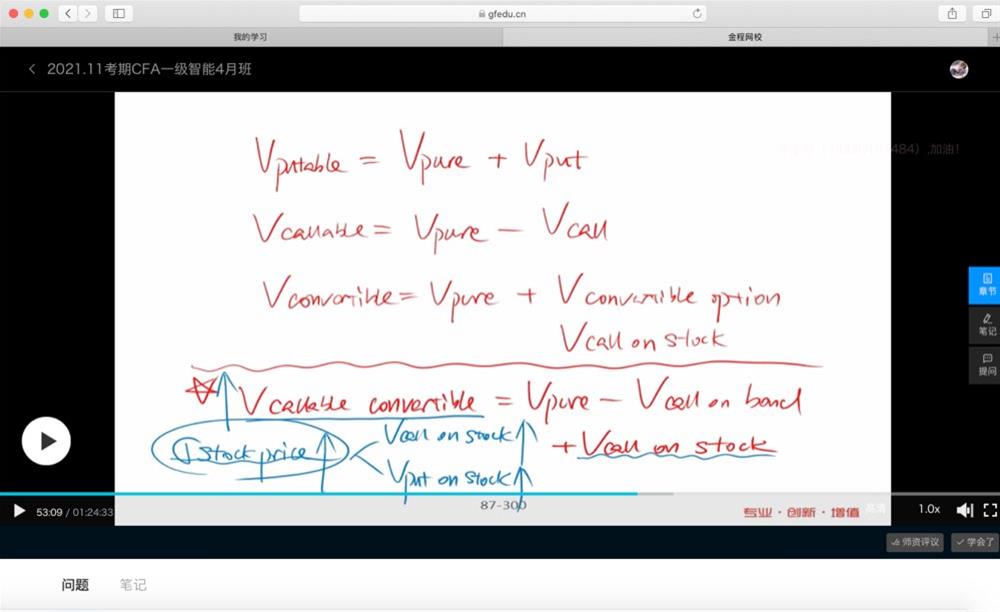 gfedu.cn
我的学习
金程网校
2021.11考期CFA一级智能4月班
484）,加油！
Vputable = Vpure + Vput
Vcallable = Vpure - Vcall
Vconvertible = Vpure + Vconvertible option
Vcall on stock
Vcallable convertible = Vpure - Vcall on bond
+ Vcall on stock
① stock price ↑ < Vcall on stock ↑
Vput on stock ↑
章节
笔记
提问
53:09 / 01:24:33
87-300
专业·创新·增值
高清
1.0x
师资评议
学会了
问题
笔记